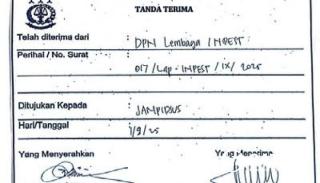 TANDA TERIMA
Telah diterima dari : DPN Lembaga INPEST
Perihal / No. Surat : 017 / Lap - INPEST / IX / 2025
Ditujukan Kepada : JAMPIDSUS
Hari/Tanggal : 1/9/25
Yang Menyerahkan Yang Menerima